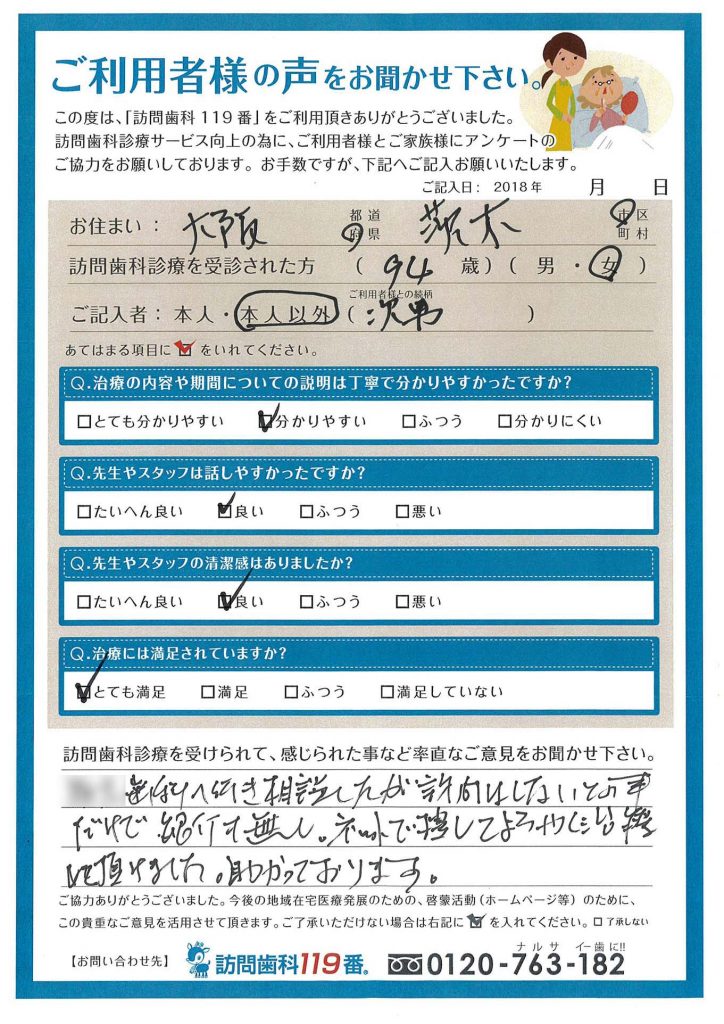 ご利用者様の声をお聞かせ下さい。
この度は、「訪問歯科119番」をご利用頂きありがとうございました。
訪問歯科診療サービス向上の為に、ご利用者様とご家族様にアンケートの
ご協力をお願いしております。お手数ですが、下記へご記入お願いいたします。
ご記入日： 2018年 月 日
お住まい： 大阪 都道府県 茨木 市区町村
訪問歯科診療を受診された方 （ 94 歳）（ 男 ・ 女 ）
ご利用者様との続柄
ご記入者：本人・本人以外（ 次男 ）
あてはまる項目に☑をいれてください。
Q.治療の内容や期間についての説明は丁寧で分かりやすかったですか？
□とても分かりやすい ☑分かりやすい □ふつう □分かりにくい
Q.先生やスタッフは話しやすかったですか？
□たいへん良い ☑良い □ふつう □悪い
Q.先生やスタッフの清潔感はありましたか？
□たいへん良い ☑良い □ふつう □悪い
Q.治療には満足されていますか？
☑とても満足 □満足 □ふつう □満足していない
訪問歯科診療を受けられて、感じられた事など率直なご意見をお聞かせ下さい。
歯科へ行き相談したが訪問はしないとの事
だけで紹介も無し。ネットで探してようやく治療
して頂けました。助かっております。
ご協力ありがとうございました。今後の地域在宅医療発展のための、啓蒙活動（ホームページ等）のために、
この貴重なご意見を活用させて頂きます。ご了承いただけない場合は右記に☑を入れてください。□了承しない
【お問い合わせ先】 訪問歯科119番。 ナルサ イー歯に!! 0120-763-182